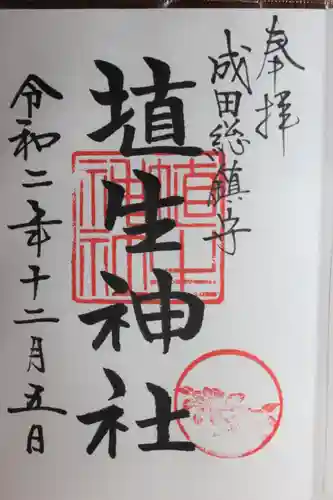 奉拝
成田総鎮守
埴生神社
令和二年十二月五日
埴生神社